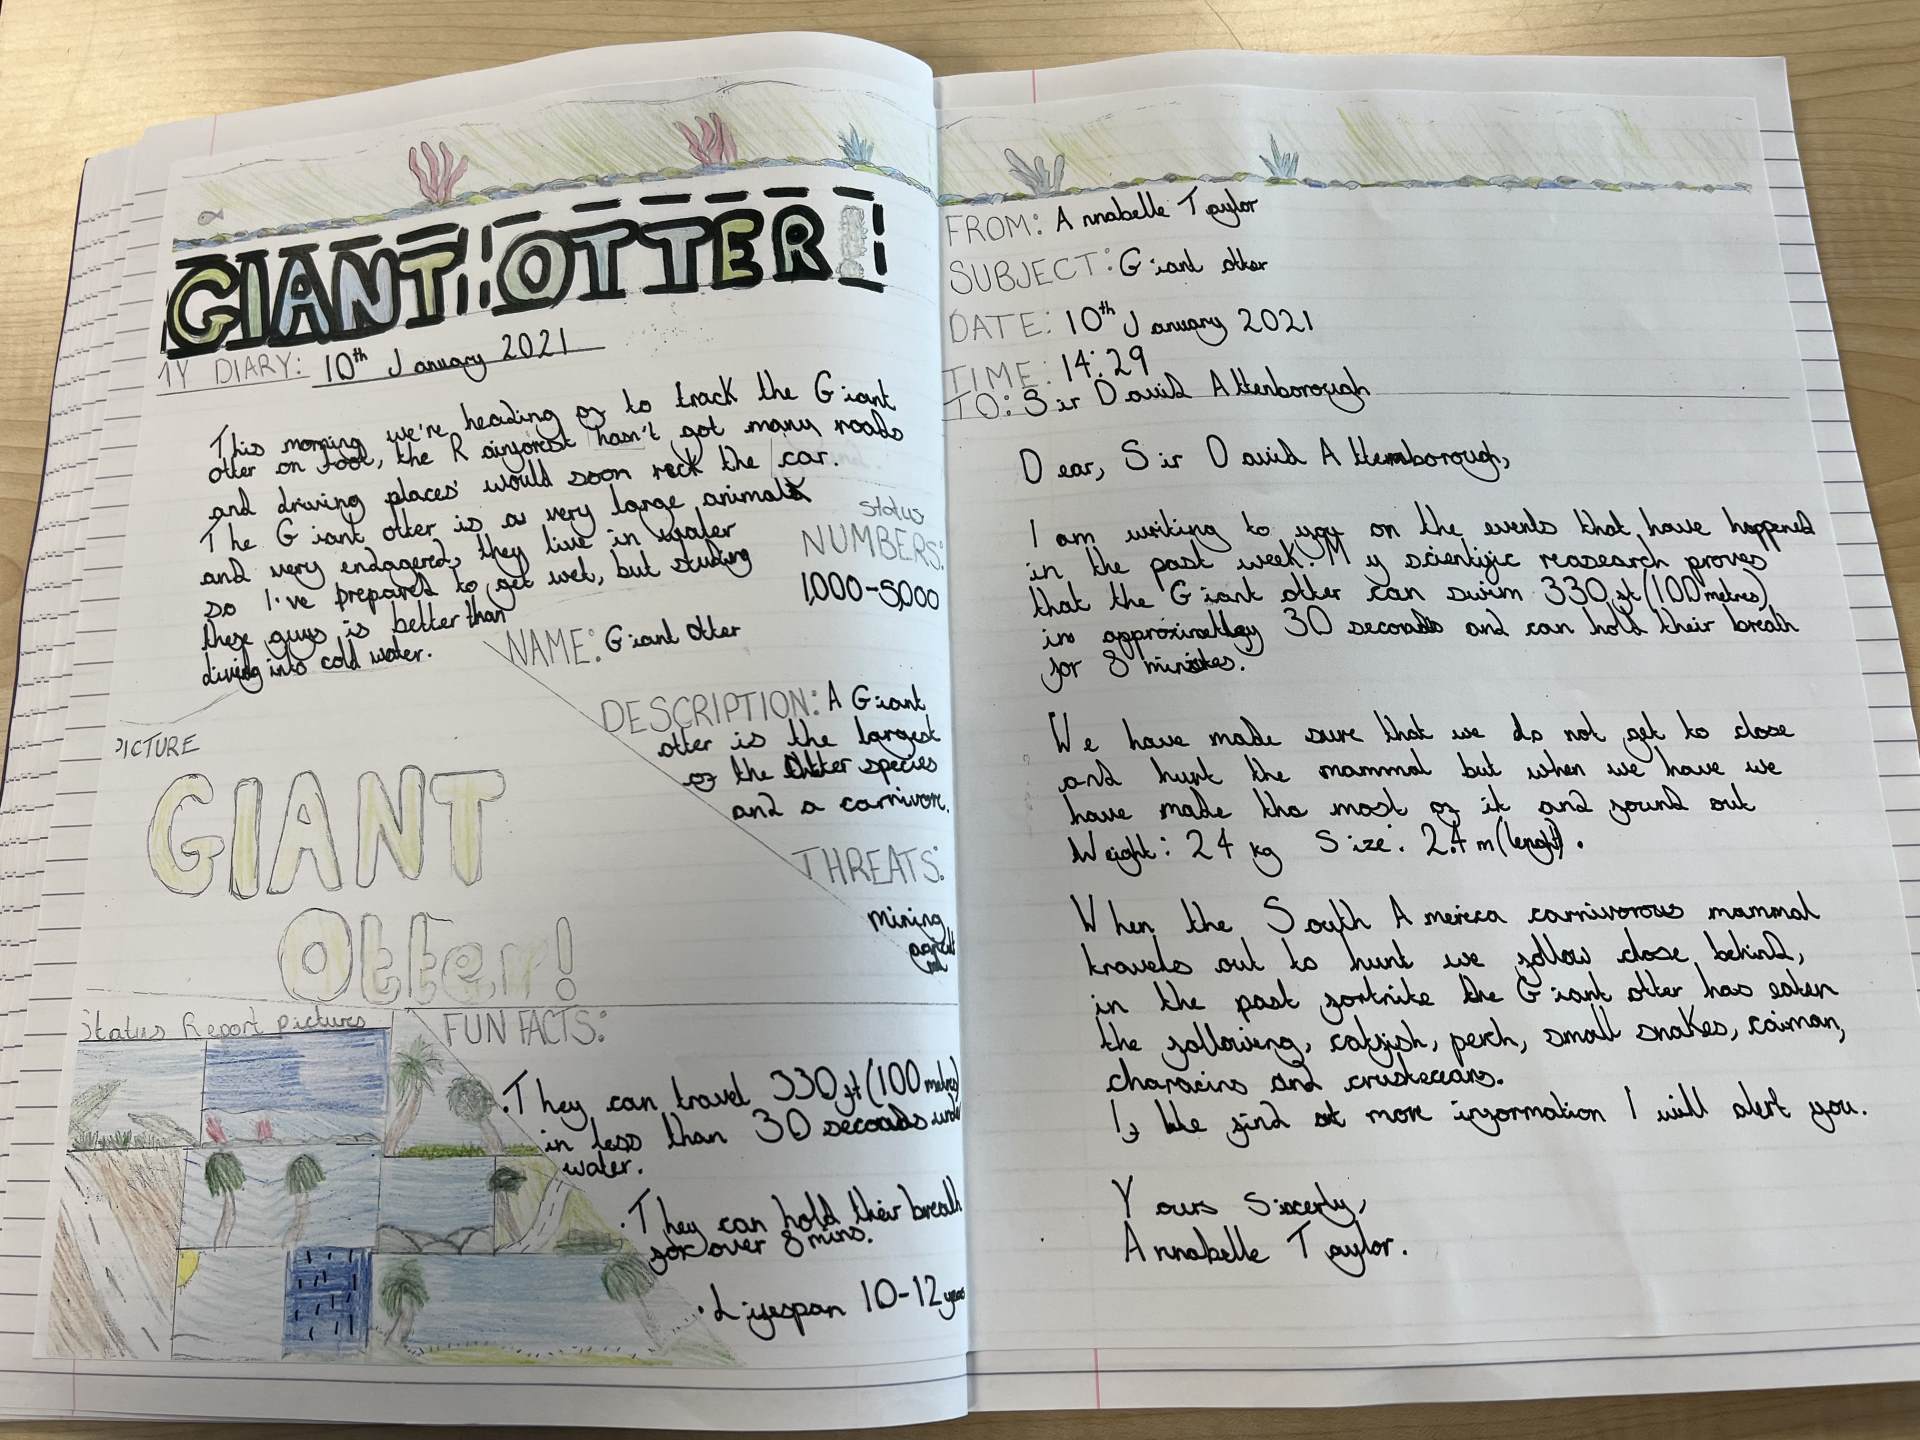 GIANT OTTER!
MY DIARY: 10th January 2021
This morning we're heading of to track the Giant
otter on foot, the Rainforest hasn't got many roads
and driving places would soon reck the car.
The Giant otter is a very large animal
and very endagered, they live in water
so I've prepared to get wet, but studing
these guys is better than
diving into cold water.
Status
NUMBERS:
1,000-5,000
NAME: Giant Otter
DESCRIPTION: A Giant
otter is the largest
of the Otter species
and a carnivore.
THREATS:
mining
PICTURE
GIANT
Otter!
Status Report pictures
FUN FACTS:
• They can travel 330ft (100 metres)
in less than 30 seconds under
water.
• They can hold their breath
for over 8 mins.
• Lifespan 10-12 years
FROM: Annabelle Taylor
SUBJECT: Giant otter
DATE: 10th January 2021
TIME: 14:29
TO: Sir David Attenborough
Dear, Sir David Attemborough,
I am writing to you on the events that have happened
in the past week. My scientific reasearch proves
that the Giant otter can swim 330 ft (100 metres)
in 30 seconds and can hold their breath
for 8
We have made sure that we do not get to close
and hunt the mammal but when we have we
have made the most of it and found out
Weight: 24 kg Size: 2.4 m (lenght).
When the South America carnivorous mammal
travels out to hunt we follow close behind,
in the past fortnite the Giant otter has eaten
the following, catfish, perch, small snakes, caiman,
characins and crusteceans.
If We find ot more information I will alert you.
Yours Sincerly,
Annabelle Taylor.